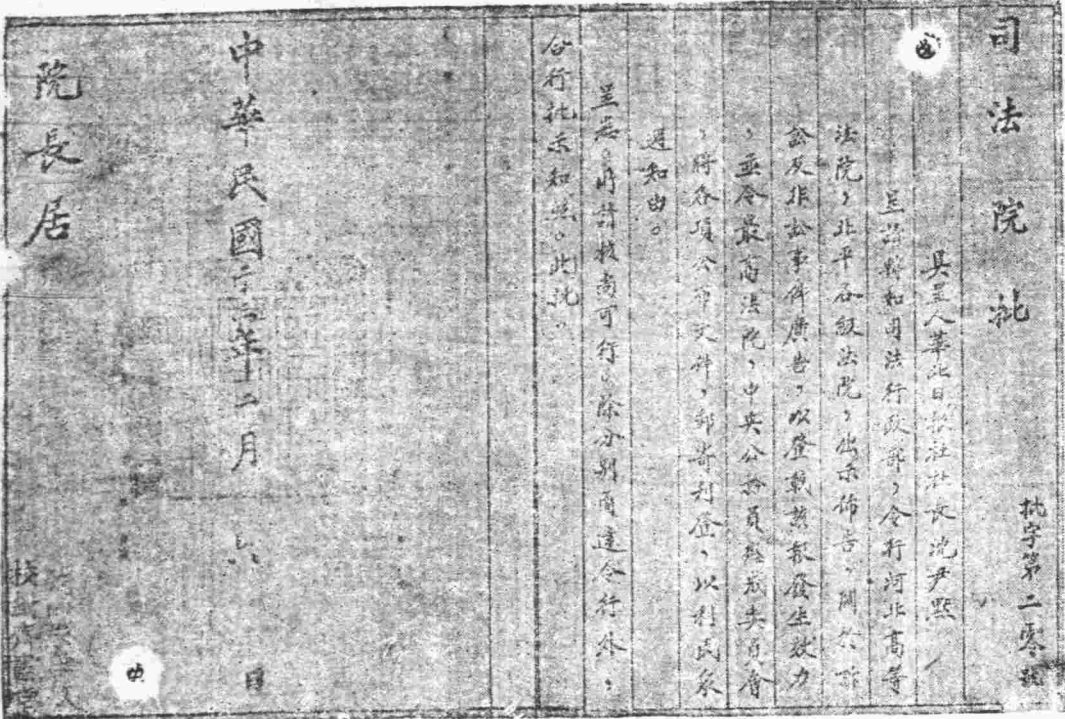 司法院批
批字第二零號
具呈人華北日報社社長沈尹默
呈請轉知司法行政部，令行河北高等
法院，北平各級法院，出示佈告，關於訴
訟及非訟事件廣告，以登載該報發生效力
，並令最高法院，中央公務員懲戒委員會
，將各項公布文件，郵寄刊登，以利民眾
週知由。
呈悉。所請核尚可行。除分別函達令行外，
合行批示知照。此批。
中華民國二十年二月 六 日
院長居